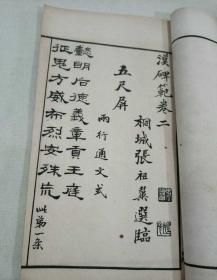 漢碑範卷二
桐城張祖翼選臨
五尺屏
兩行通文式
懿明后德義章貢王庭
征鬼方威布烈安殊荒
此第一条